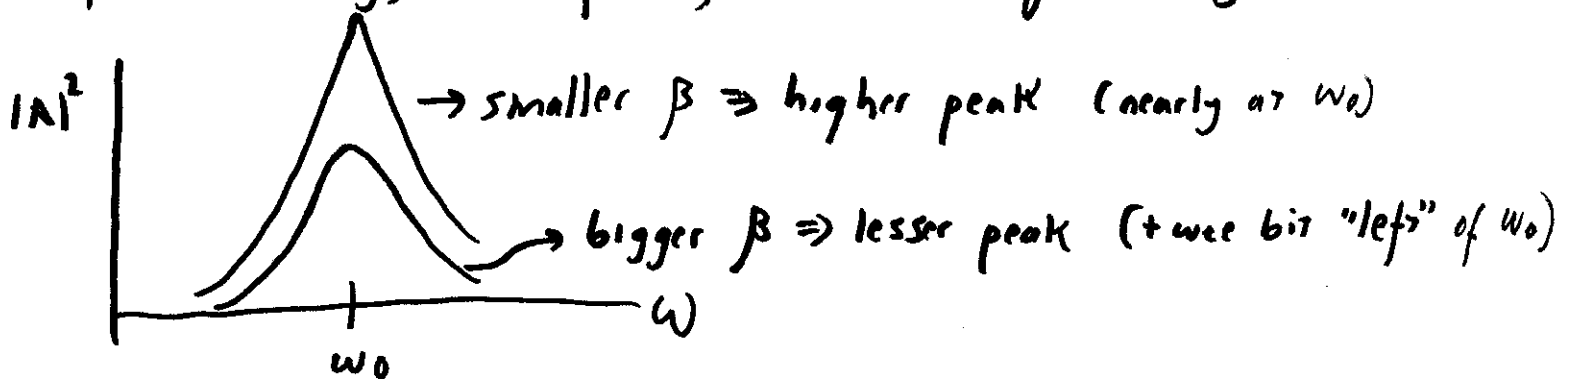 |A|²
→ smaller β ⇒ higher peak (nearly at ω₀)
→ bigger β ⇒ lesser peak (+ wee bit "left" of ω₀)
ω
ω₀